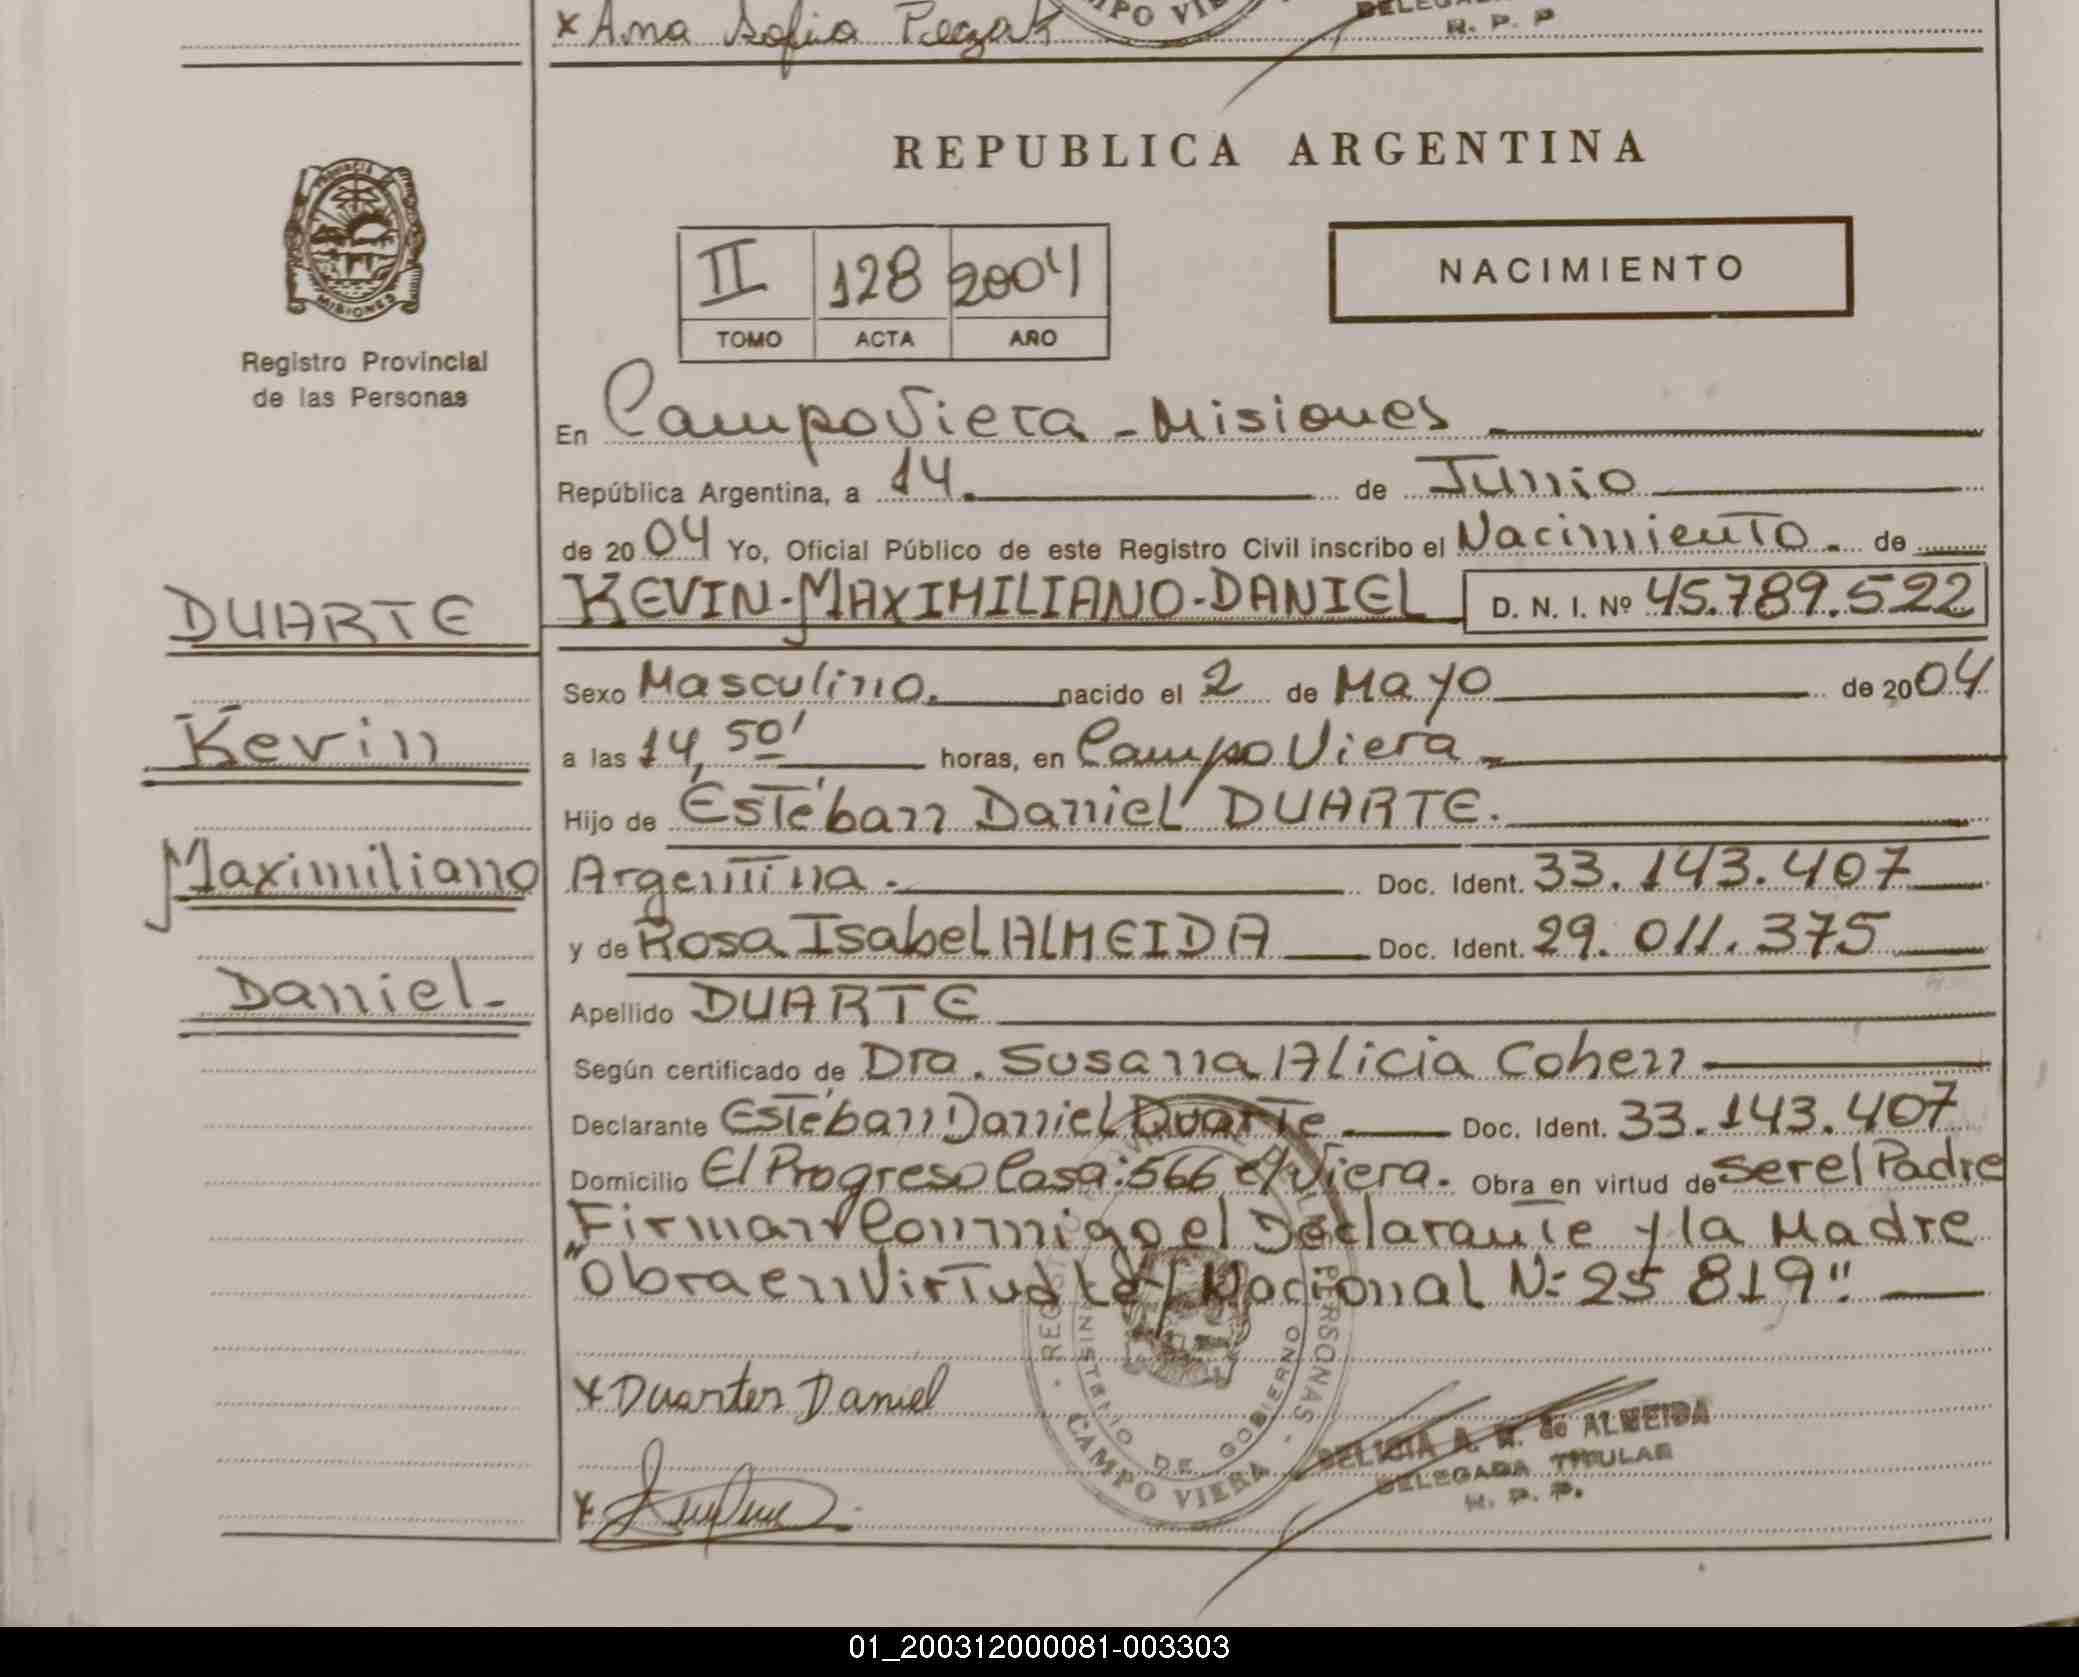 x Ana Sofia
CAMPO VIERA
R. P. P
REPUBLICA ARGENTINA
PROVINCIA
MISIONES
Registro Provincial
de las Personas
II 128 2004
TOMO ACTA AÑO
NACIMIENTO
En Campo Viera - Misiones
República Argentina, a 14. de Junio
de 2004 Yo, Oficial Público de este Registro Civil inscribo el Nacimiento. de
KEVIN-MAXIMILIANO-DANIEL D. N. I. Nº 45.789.522
DUARTE
Kevin
Maximiliano
Daniel-
Sexo Masculino. nacido el 2 de Mayo de 2004
a las 14, 50' horas, en Campo Viera
Hijo de Estéban Daniel DUARTE.
Argentina. Doc. Ident. 33.143.407
y de Rosa Isabel ALMEIDA Doc. Ident. 29.011.375
Apellido DUARTE
Según certificado de Dra. Susana Alicia Cohen
Declarante Estéban Daniel Duarte Doc. Ident. 33.143.407
Domicilio El Progreso Casa: 566 c/Viera. Obra en virtud de ser el Padre
Firman Conmigo el Declarante y la Madre
"Obra en Virtud Ley Nacional N: 25 819"
x Duarter Daniel
x
MINISTERIO DE GOBIERNO
CAMPO VIERA
DELICIA A. R. de ALMEIDA
DELEGADA TITULAR
R. P. P.
01_200312000081-003303